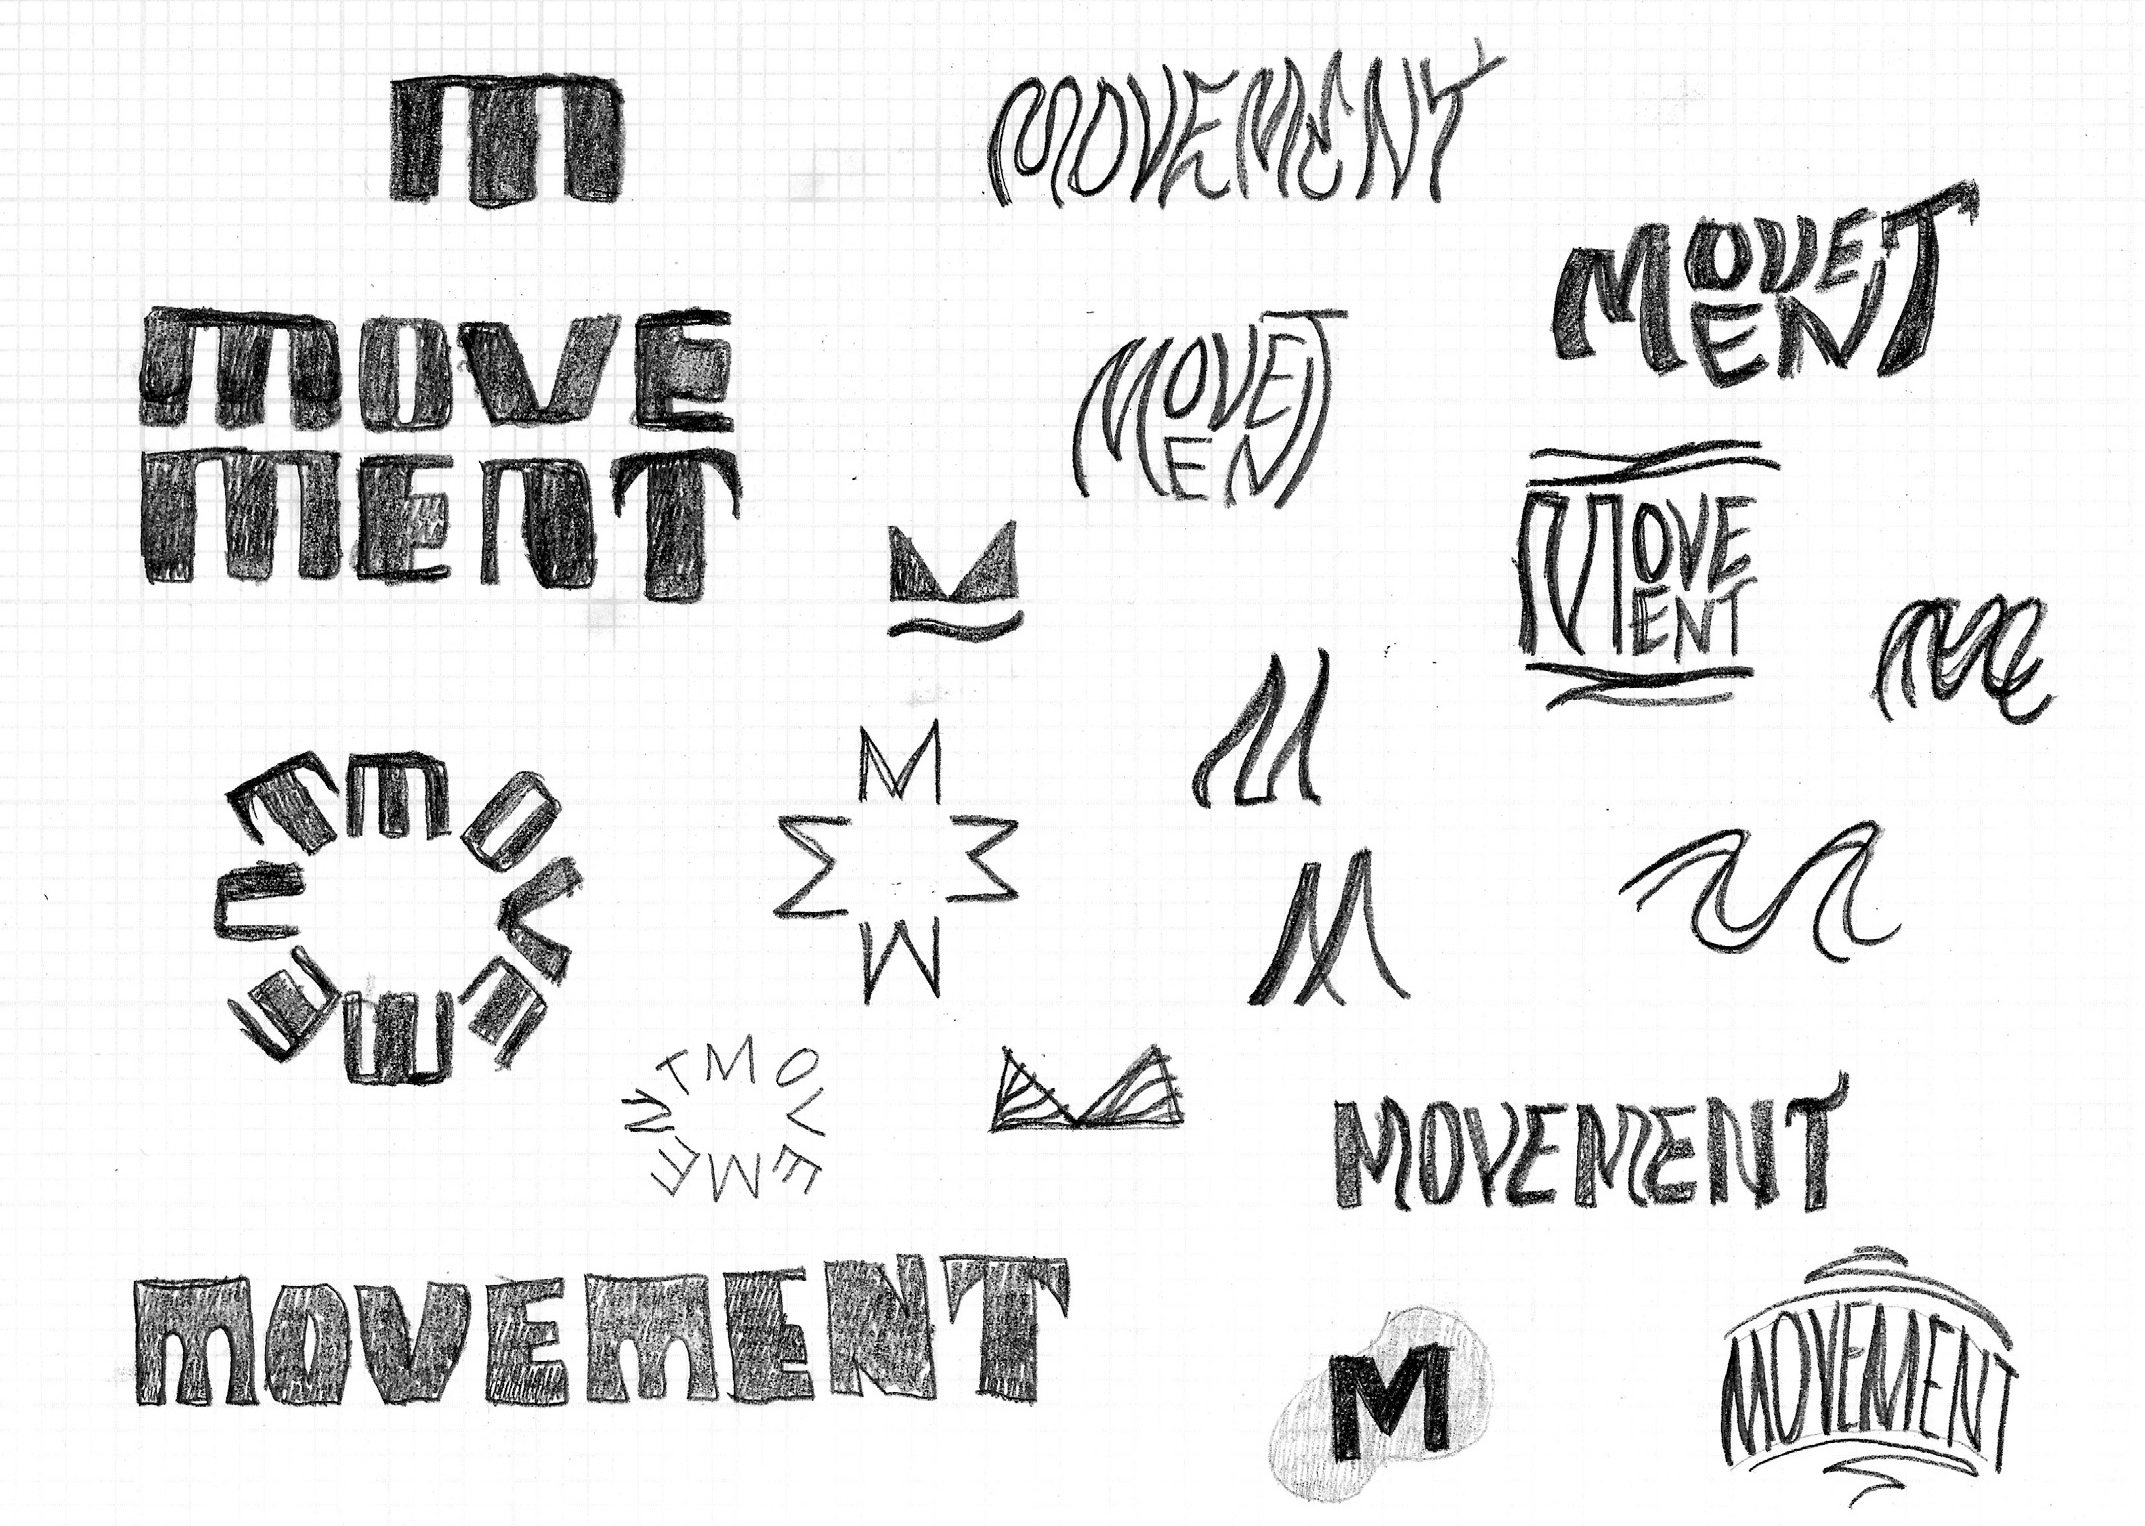 M
MOVEMENT
MOVE
MENT
MOVE T
EN
MOVE T
EN
M
MOVE
ENT
M
MOVEMENT
M
M
M
M
M
MOVEMENT
M
MOVEMENT
MOVEMENT
M
MOVEMENT